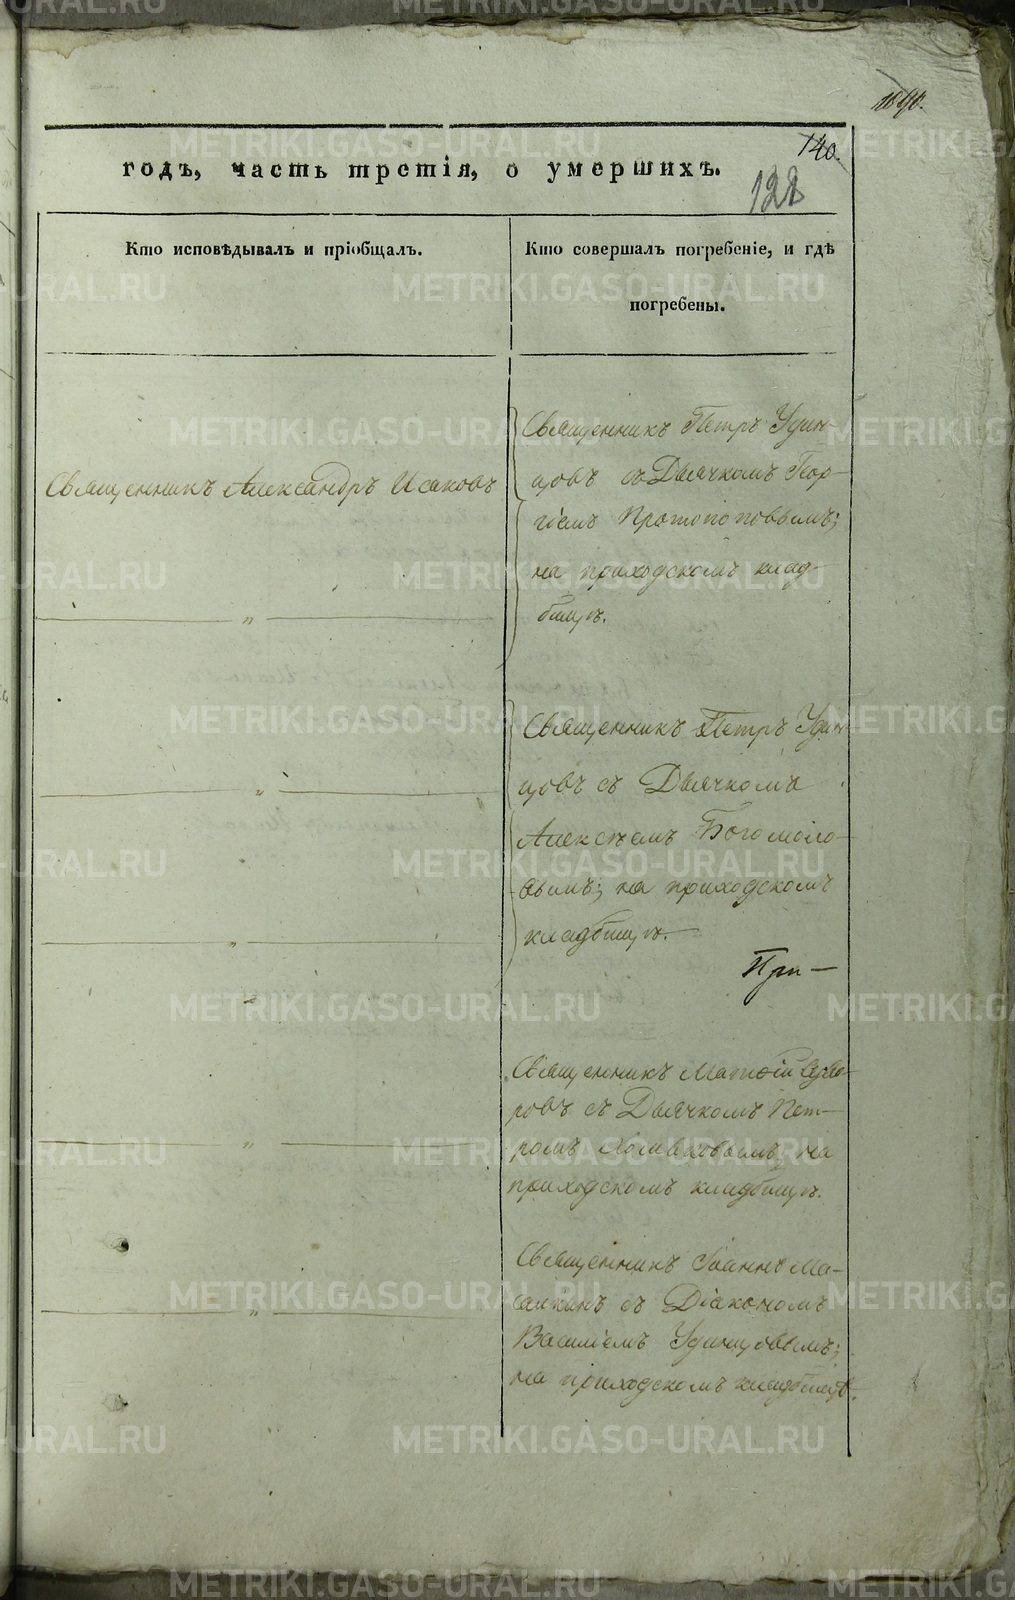 1090.
140.
122
годъ, часть третія, о умершихъ.
Кто исповѣдывалъ и пріобщалъ.
Кто совершалъ погребеніе, и гдѣ
погребены.
Священникъ Александръ Исаковъ
Священникъ Петръ Удин-
цовъ съ Дьячкомъ Геор-
гіемъ Протопоповымъ;
на приходскомъ клад-
бищѣ.
— „ —
Священникъ Петръ Удин-
цовъ съ Дьячкомъ
Алексѣемъ Богомоло-
вымъ; на приходскомъ
кладбищѣ.
— „ —
— „ —
При—
Священникъ Матѳій
ровъ съ Дьячкомъ Пет-
ромъ на
приходскомъ кладбищѣ.
— „ —
Священникъ Іоаннъ Ма-
салкинъ съ Діакономъ
Василіемъ Удинцовымъ;
на приходскомъ кладбищѣ.
— „ —
METRIKI.GASO-URAL.RU